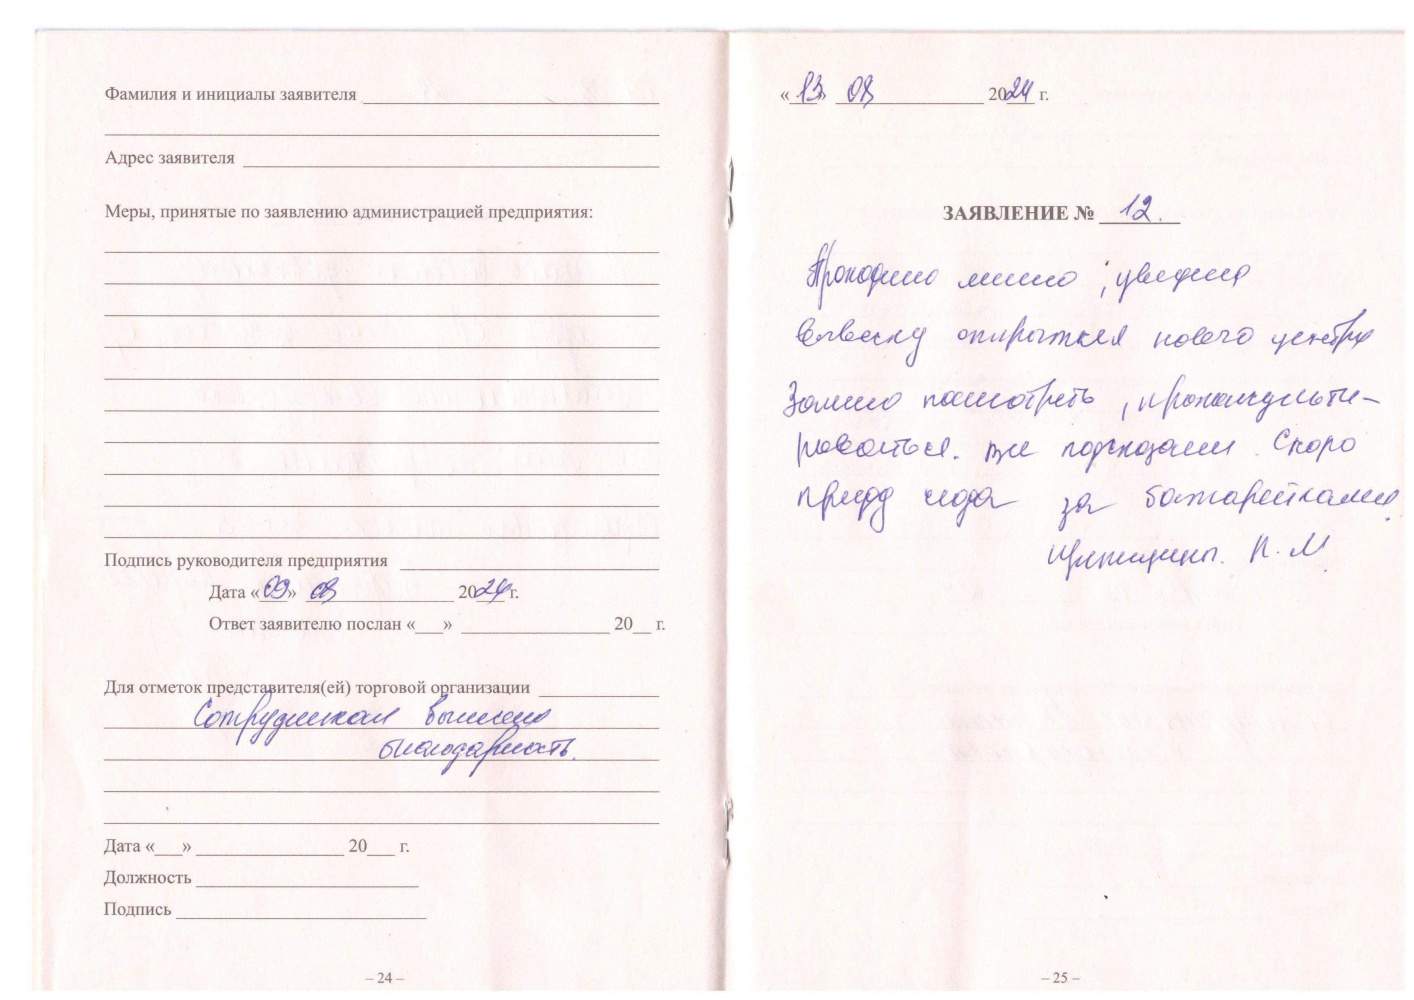 Фамилия и инициалы заявителя
Адрес заявителя
Меры, принятые по заявлению администрацией предприятия:
Подпись руководителя предприятия
Дата «09» 08 2024 г.
Ответ заявителю послан «___» ____ 20__ г.
Для отметок представителя(ей) торговой организации
Сотрудникам
благодарность.
Дата «___» ____ 20___ г.
Должность
Подпись
– 24 –
«13» 08 2024 г.
ЗАЯВЛЕНИЕ № 12.
Проходила мимо, увидела
вывеску открытия нового центра
Зашла посмотреть, проконсульти-
роваться. все подсказали. Скоро
приду сюда за батарейками
П. М
– 25 –